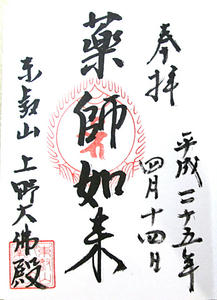 奉拝
平成二十五年
四月十四日
薬師如来
東叡山 上野大佛殿